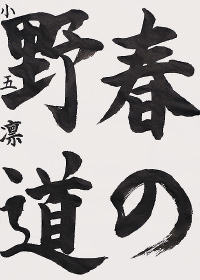 春の
野道
小五 凛